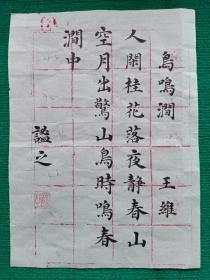 鳥鳴澗 王維
人閑桂花落夜靜春山
空月出驚山鳥時鳴春
澗中
謐之